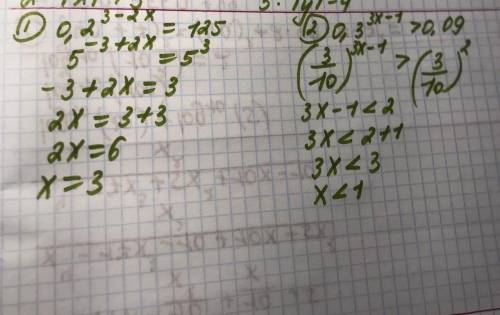 ① 0,2^{3-2x} = 125
5^{-3+2x} = 5^3
-3+2x = 3
2x = 3+3
2x = 6
x = 3
② 0,3^{3x-1} > 0,09
(3/10)^{3x-1} > (3/10)^2
3x-1 < 2
3x < 2+1
3x < 3
x < 1